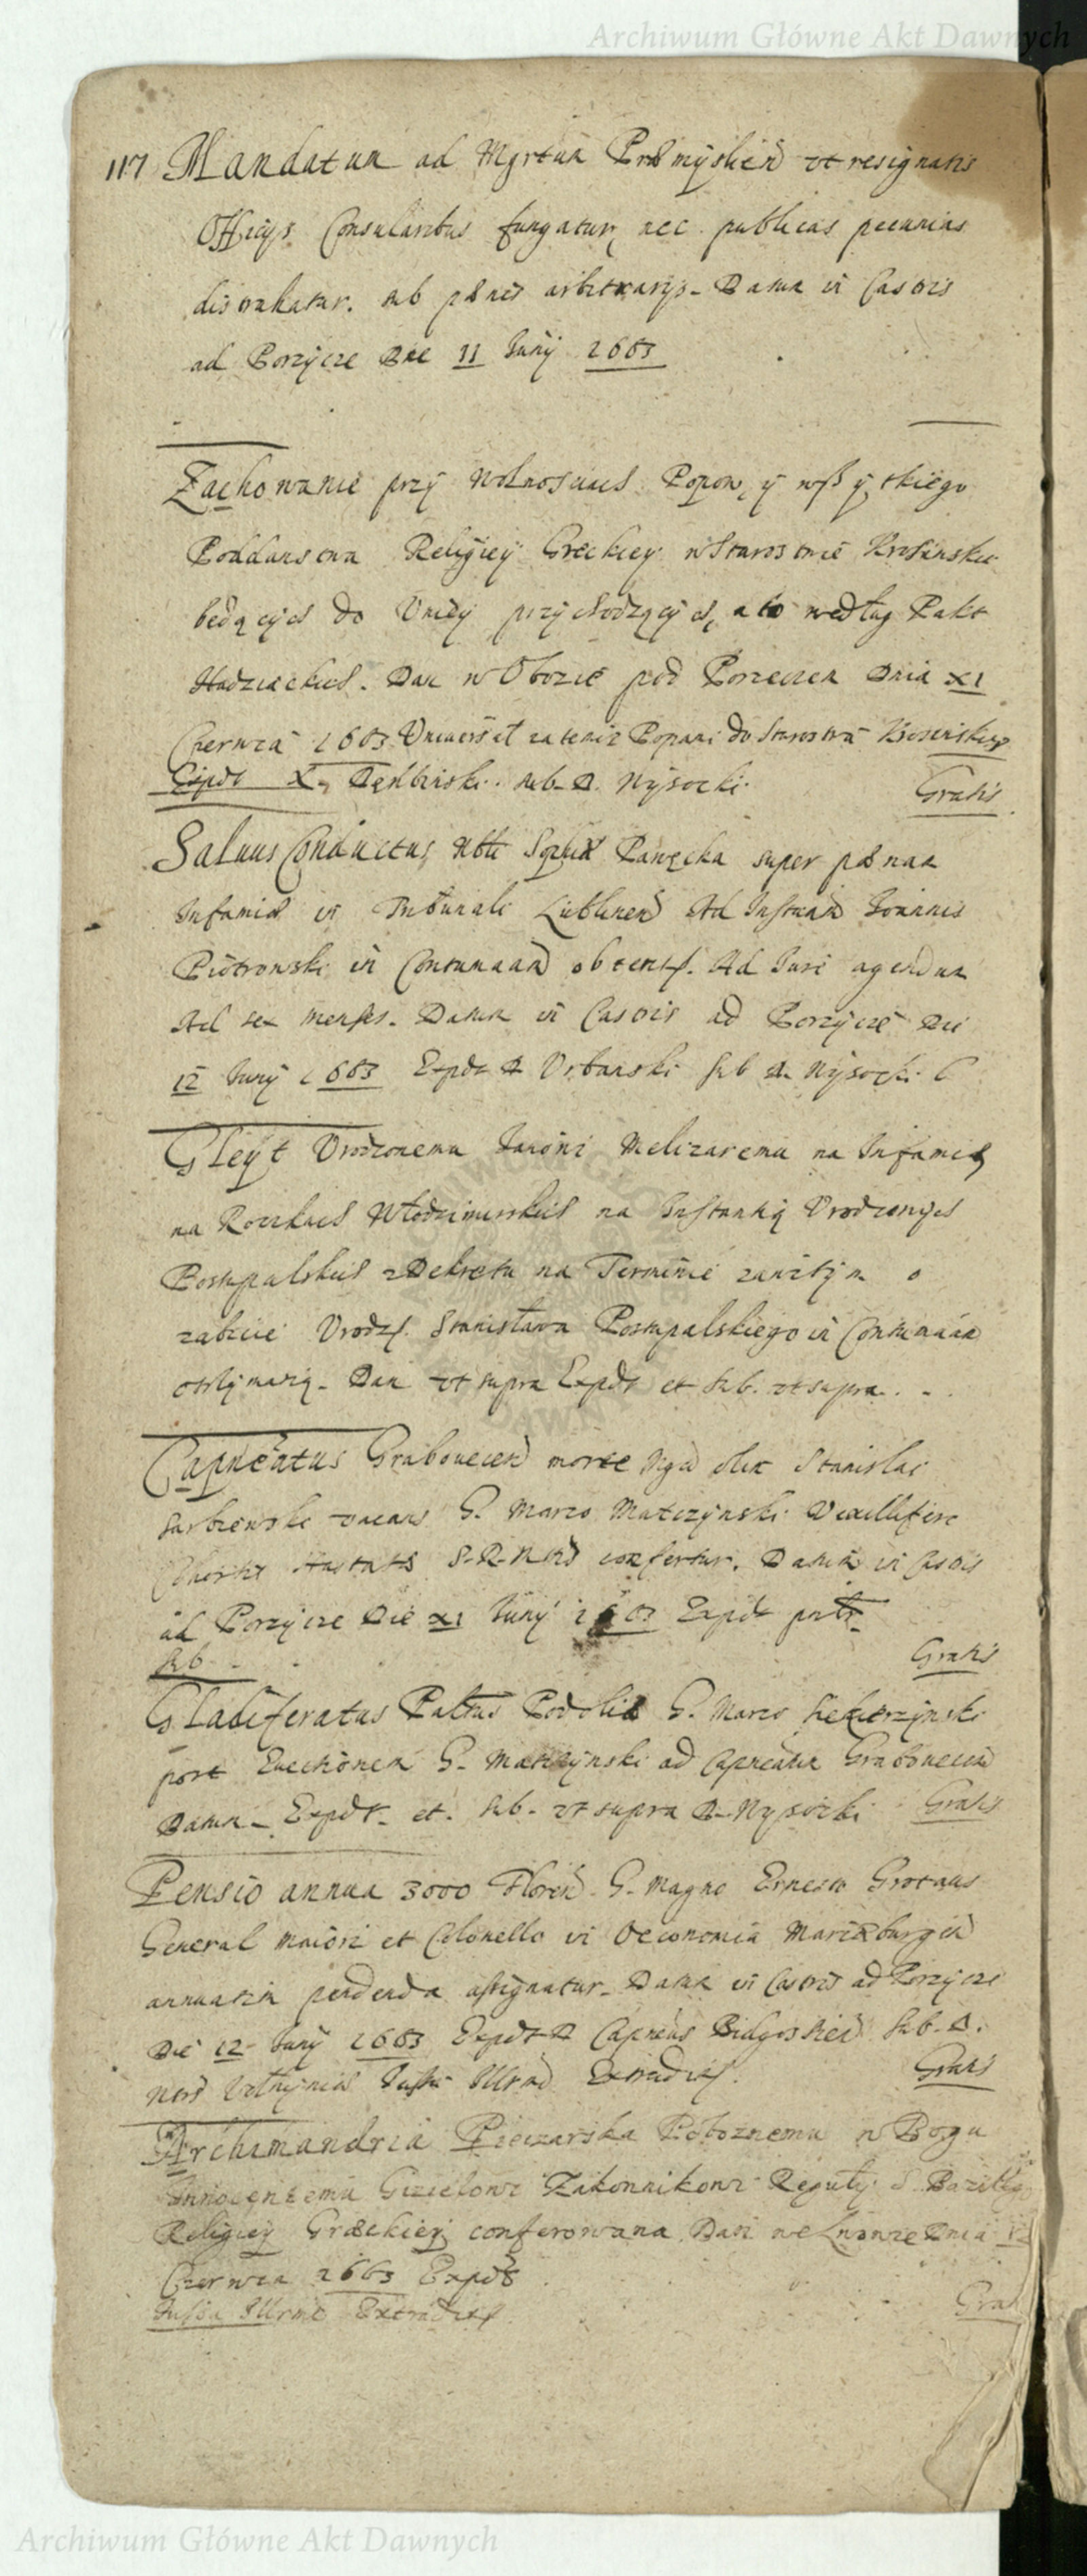 Archiwum Główne Akt Dawnych
117 Mandatum ad Mgrtum Præmyslien ut resignatis
Officijs Consularibus fungatur, nec publicas pecunias
distrahatur. sub pænis arbitrarijs. Datum in Castris
ad Porzycze Die 11 Junij 1663
Zachowanie przy Wolnosciach Popow, y wszytkiego
Poddanstwa Religiey Greckiey w Starostwie Krosinskie
będących do Uniey przychodzących, a to według Pakt
Hadziackich. Dan w Obozie pod Porzeczem Dnia XI
Czerwca 1663 Uniwersał za temiz Popami do Starostwa Krosinskiego
Expdt X. Dęmbinski. sub. D. Wysocki. Gratis
Salvus Conductus, Nbli Sophiæ Pawęcka super pænam
Infamiæ in Tribunali Lublinen Ad Instnam Joannis
Piotrowski in Contumaam obtent. Ad Juri agendum
Ad sex menses. Datum in Castris ad Porzycze Die
12 Junij 1663 Expdt D Urbanski Sub D. Wysocki C
Gleyt Urodzonemu Janowi Melizaremu na Infamię
na Roczkach Włodzimirskich na Instantią Urodzonych
Postupalskich z Dekretu na Terminie zawitym o
zabicie Urodz. Stanisława Postupalskiego in Contumaam
otrzymaną. Dan ut supra Expdt et Sub. ut supra.
Capneatus Grabovecen morte Mgci olim Stanislai
Sarbiewski vacans G. Marco Matczynski Vexillifero
Cohortis Hastatæ S. R. Mtis confertur. Datum in Castris
ad Porzycze Die XI Junij 1663 Expdt
Sub Gratis
Gladiferatus Paltus Podoliæ G. Marco Siekierzynski
post Evectionem G. Matczynski ad Capneatum Grabovecen
Datum Expdt. et. Sub. ut supra D. Wysocki Gratis
Pensio annua 3000 Floren. G. Magno Ernesto Grotaus
General Maiori et Colonello in Oeconomia Mariæburgen
annuatim pendenda assignatur. Datum in Castris ad Porzycze
Die 12 Junij 1663 Expdt D Capneus Bidgostien Sub. D.
Jussu Illrmi Extradit. Gratis
Archimandria Pieczarska Pobożnemu w Bogu
Innocentemu Gizielowi Zakonnikowi Reguły S. Bazilego
Religiey Græckiey conferowana Dan we Lwowie Dnia 12
Czerwca 1663 Expdt
Jussu Illrmi Extradit Gra
Archiwum Główne Akt Dawnych